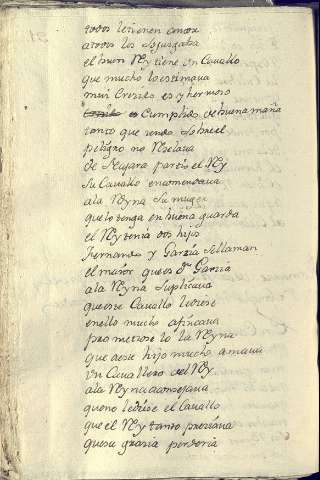 todos le tienen amor
a todos los sojuzgaba
el buen Rey tiene un Cavallo
que mucho lo estimava
mui Crecido es y hermoso
es Cumplido de buena maña
tanto que yendo sobre el
peligro no Reselava
de Najara partio el Rey
su Cavallo encomendava
a la Reyna su muger
que lo tenga en buena guarda
el Rey tenia dos hijos
Fernando y Garzia se llaman
el maior que es Dn Garzia
a la Reyna suplicava
que ese Cavallo le diese
en ello mucho afincava
prometioselo la Reyna
que a ese hijo mucho amava
un Cavallero del Rey
a la Reyna aconsejava
que no le diese el Cavallo
que el Rey tanto preziava
que su grazia perderia